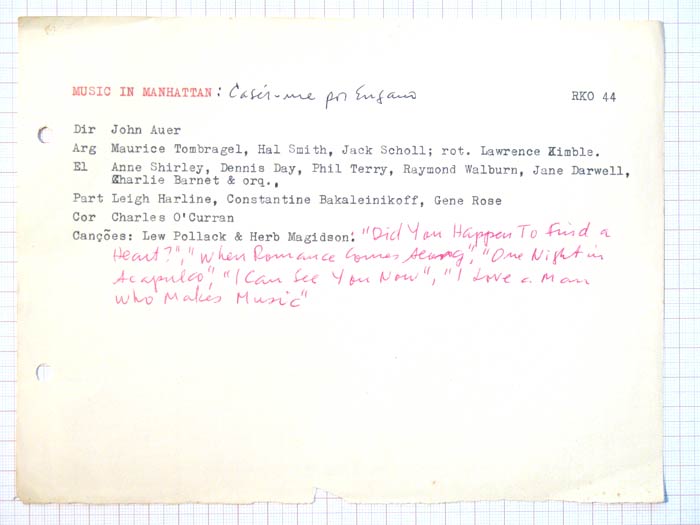 MUSIC IN MANHATTAN: Casei-me por Engano RKO 44
Dir John Auer
Arg Maurice Tombragel, Hal Smith, Jack Scholl; rot. Lawrence Kimble.
El Anne Shirley, Dennis Day, Phil Terry, Raymond Walburn, Jane Darwell,
Charlie Barnet & orq.,
Part Leigh Harline, Constantine Bakaleinikoff, Gene Rose
Cor Charles O'Curran
Canções: Lew Pollack & Herb Magidson: "Did You Happen To Find a
Heart?", "When Romance Comes Along", "One Night in
Acapulco", "I Can See You Now", "I Love a Man
Who Makes Music"